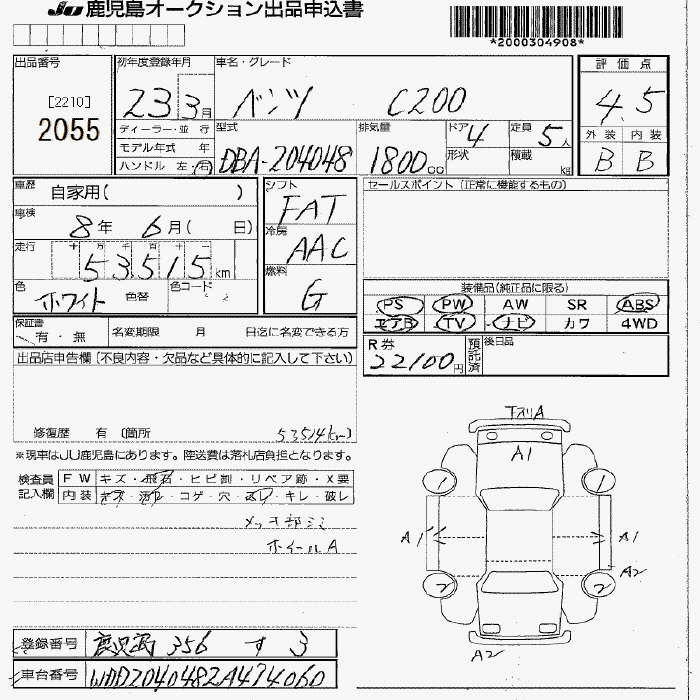 JU 鹿児島オークション出品申込書
*2000304908*
出品番号
[2210]
2055
初年度登録年月
23 3月
車名・グレード
ベンツ C200
評価点
4.5
ディーラー・並 行
モデル年式 年
ハンドル 左・右
型式
DBA-204048
排気量
1800cc
ドア 4
形状
定員 5人
積載 kg
外装 内装
B B
車歴
自家用( )
車検
8年 6月( 日)
走行
十 万 千 百 十 一
53515km
色
ホワイト
色替
色コード
シフト
FAT
冷房
AAC
燃料
G
セールスポイント(正常に機能するもの)
装備品(純正品に限る)
PS PW AW SR ABS
エアB TV ナビ カワ 4WD
保証書
有・無
名変期限 月 日迄に名変できる方
R券
22100円
預託済
後日品
出品店申告欄(不良内容・欠品など具体的に記入して下さい)
修復歴 有 〔箇所 53514km〕
※現車はJU鹿児島にあります。陸送費は落札店負担となります。
検査員記入欄
FW キズ・飛石・ヒビ割・リペア跡・X要
内装 キズ・汚れ・コゲ・穴・スレ・キレ・破レ
メッキ部シミ
ホイールA
下スリA
A1
1 1
A1 A1
A2
2 2
A2
登録番号 鹿児島 356 す 3
車台番号 WDD2040482A474060